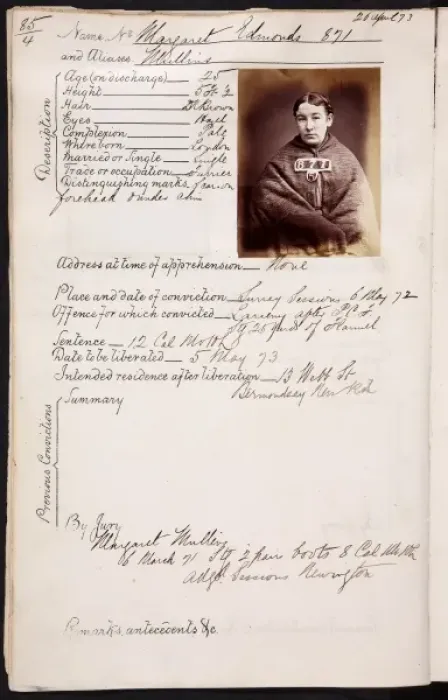 85/4
26 April 73
Name No Margaret Edmonds 871
and Aliases Mullins
Description
Age (on discharge) 25
Height 5 ft
Hair Dk Brown
Eyes Hazel
Complexion Pale
Where born London
Married or Single Single
Trade or occupation Furrier
Distinguishing marks Scar on
forehead & under chin
871
Address at time of apprehension None
Place and date of conviction Surrey Sessions 6 May 72
Offence for which convicted Larceny after P.C. F.
Stg 25 yards of Flannel
Sentence 12 Cal Mos
Date to be liberated 5 May 73
Intended residence after liberation 13 Webb St
Bermondsey New Rd
Previous Convictions
Summary
By Jury
Margaret Mullins
6 March 71 Stg 2 pair boots 8 Cal Mos
Adgd Sessions Newington
Remarks, antecedents &c.